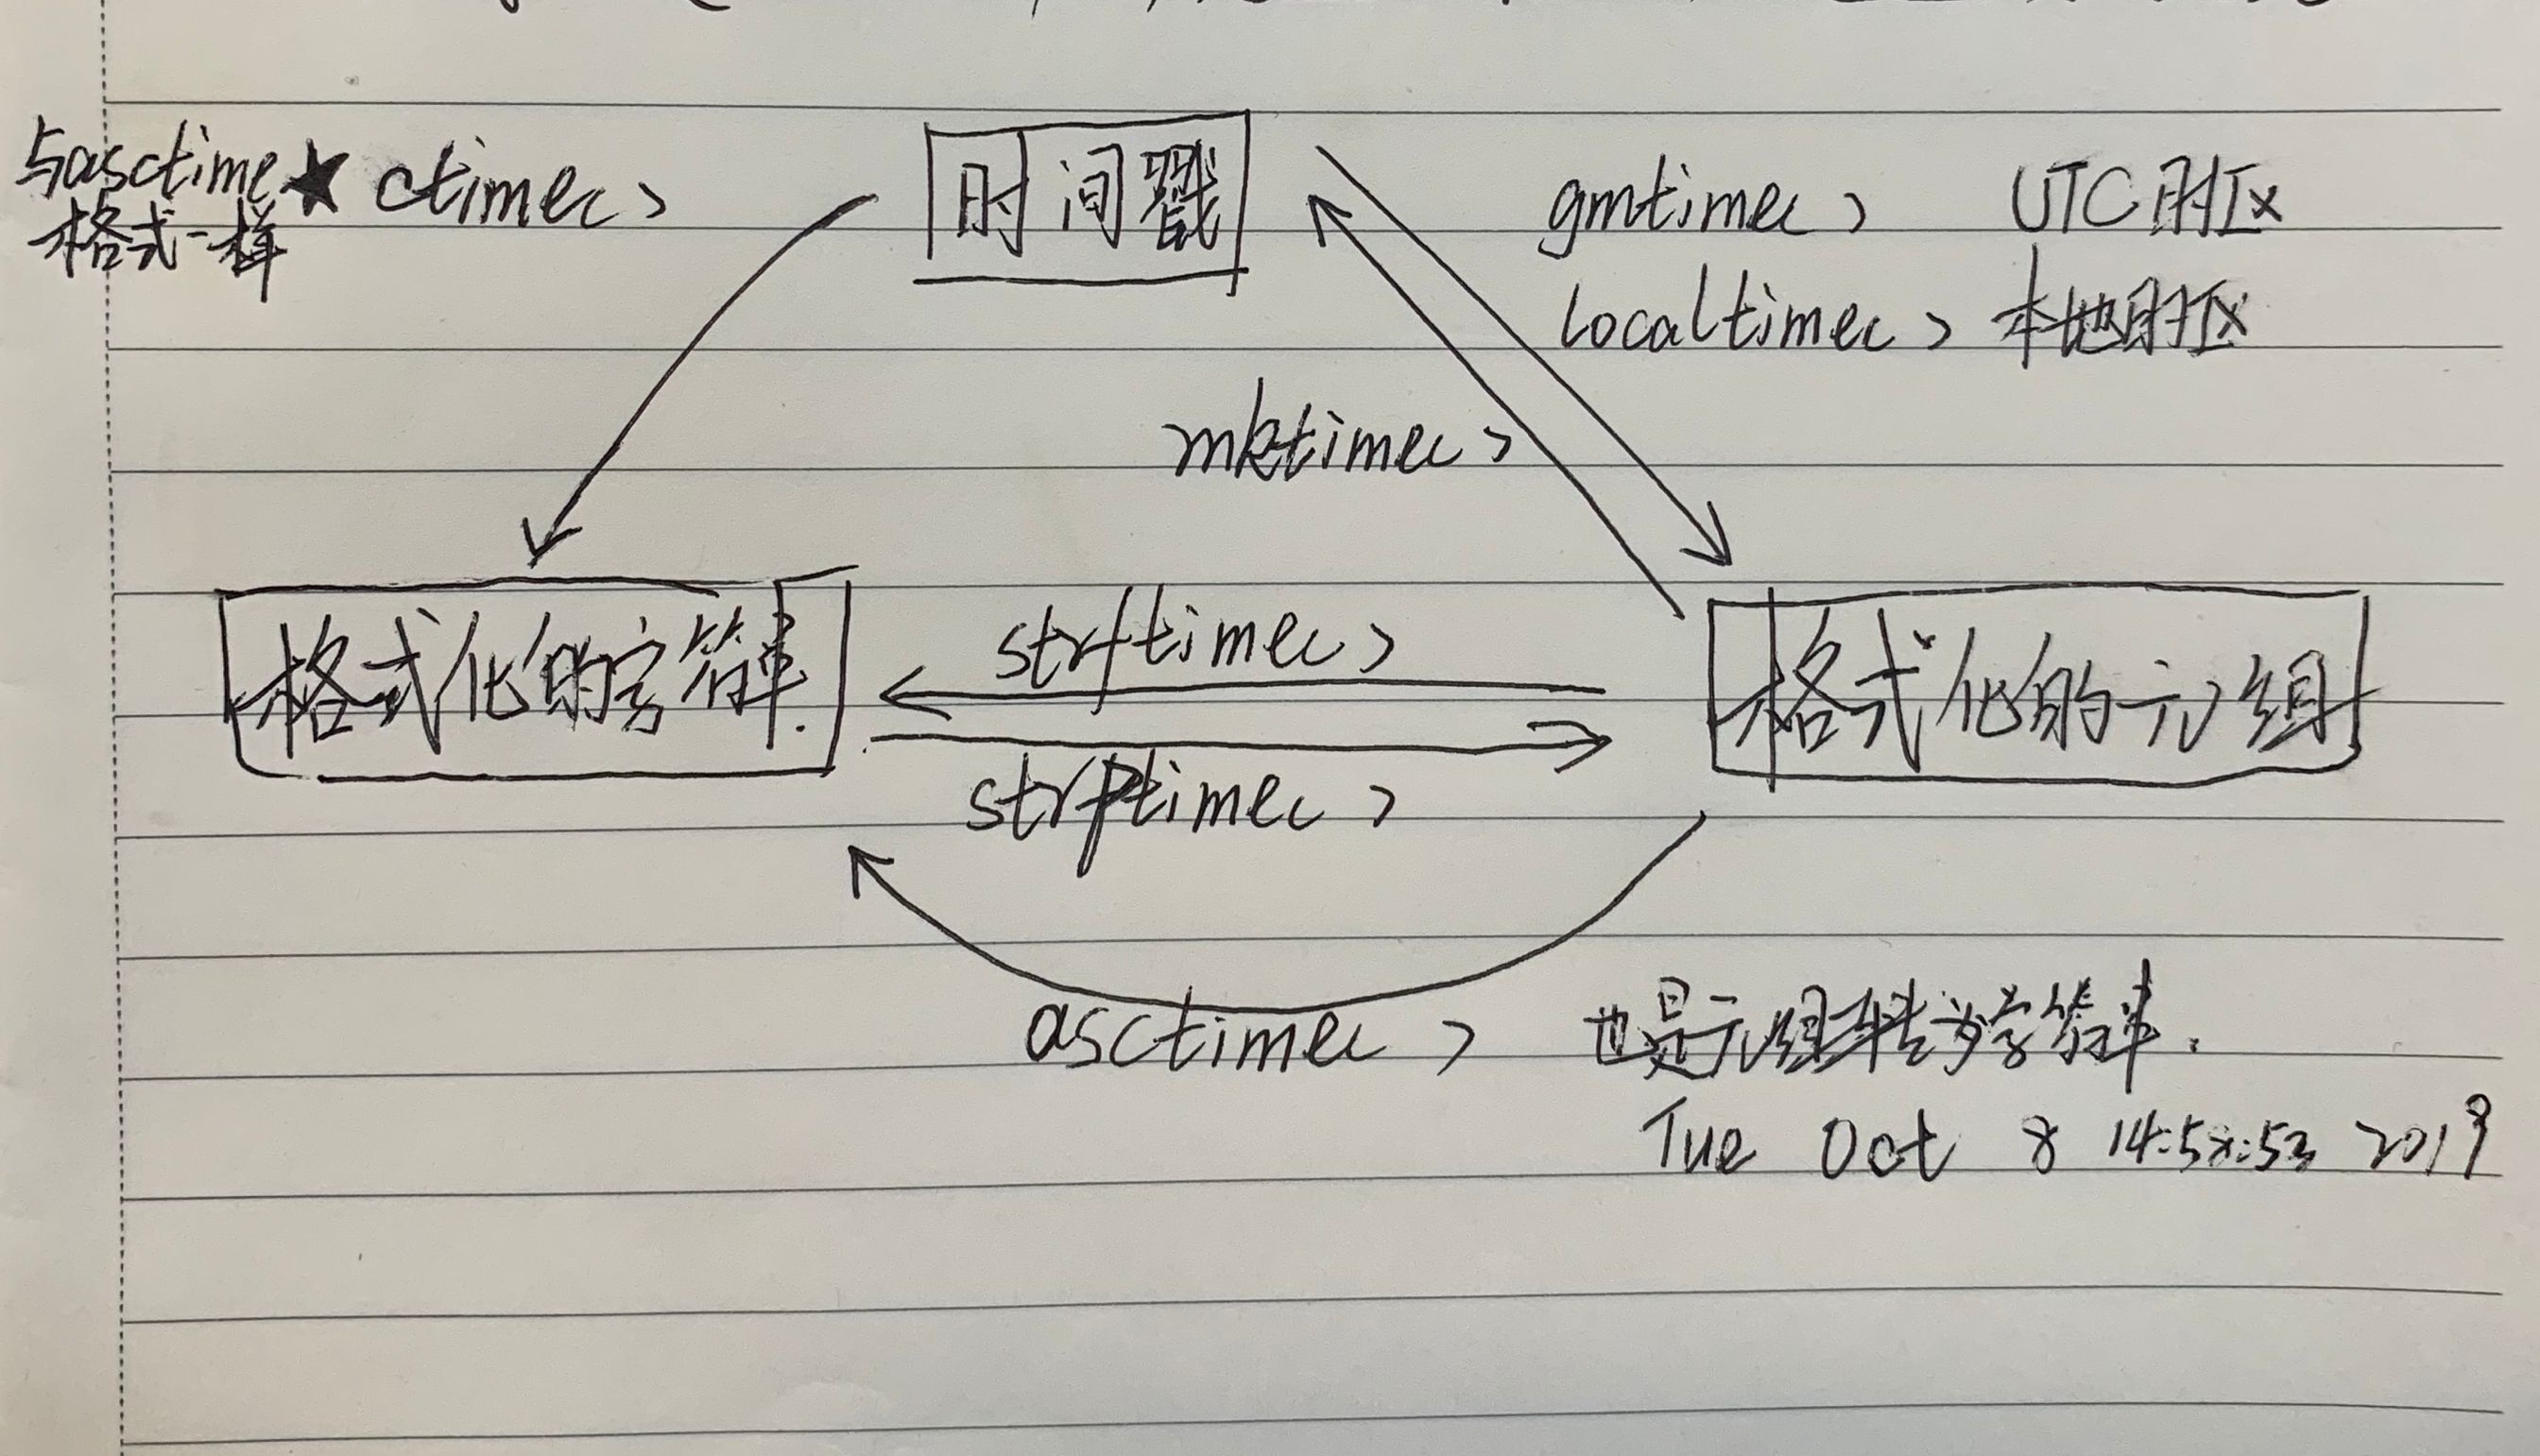 与asctime★ ctime()
格式一样
时间戳
gmtime() UTC时区
localtime() 本地时区
mktime()
格式化的字符串.
strftime()
格式化的元组
strptime()
asctime() 也是元组转为字符串.
Tue Oct 8 14:58:53 2019